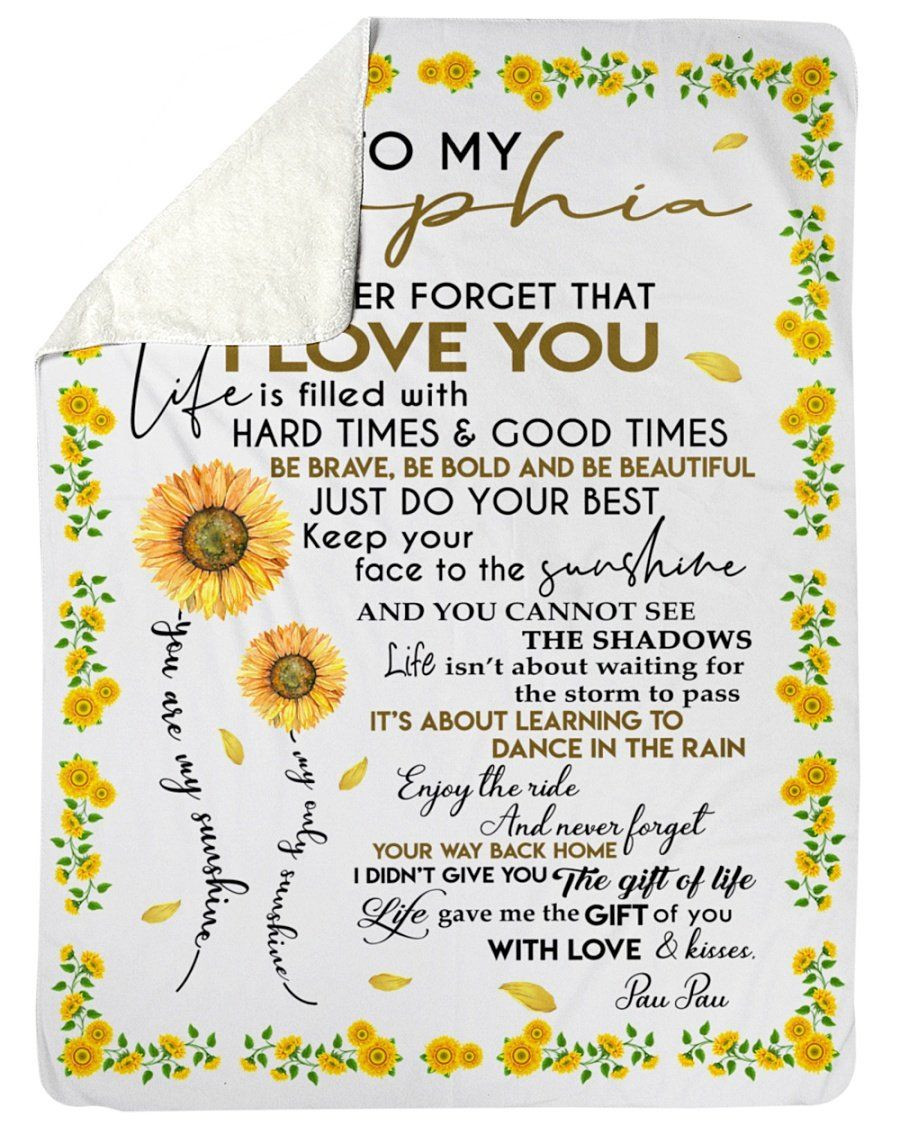 O MY
phia
ER FORGET THAT
I LOVE YOU
Life is filled with
HARD TIMES & GOOD TIMES
BE BRAVE, BE BOLD AND BE BEAUTIFUL
JUST DO YOUR BEST
Keep your
face to the sunshine
AND YOU CANNOT SEE
THE SHADOWS
Life isn't about waiting for
the storm to pass
IT'S ABOUT LEARNING TO
DANCE IN THE RAIN
Enjoy the ride
And never forget
YOUR WAY BACK HOME
I DIDN'T GIVE YOU The gift of life
Life gave me the GIFT of you
WITH LOVE & kisses,
Pau Pau
you are my sunshine
my only sunshine